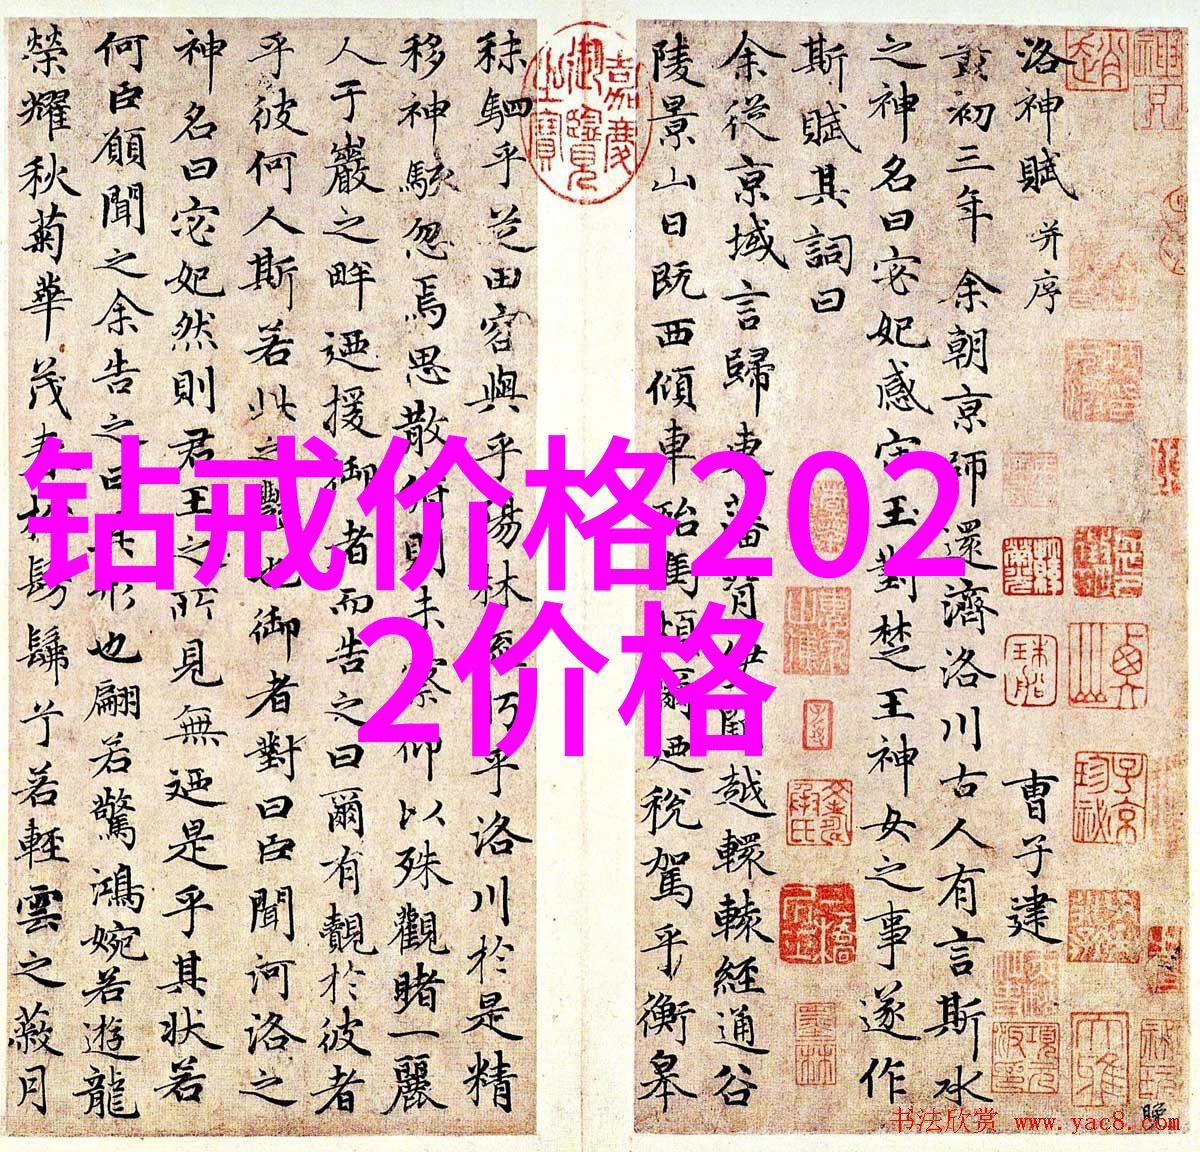 钻戒价格202
2价格
洛神賦 并序 曹子建
黄初三年余朝京師還濟洛川古人有言斯水
之神名曰宓妃感宋玉對楚王神女之事遂作
斯賦其詞曰
余從京域言歸東藩背伊闕越轘轅經通谷
陵景山日既西傾車殆馬煩爾廼稅駕乎衡皋
秣駟乎芝田容與乎陽林流眄乎洛川於是精
移神駭忽焉思散俯則未察仰以殊觀睹一麗
人于巖之畔廼援御者而告之曰爾有覿於彼者
乎彼何人斯若此之豔也御者對曰臣聞河洛之
神名曰宓妃然則君王之所見無廼是乎其状若
何臣願聞之余告之曰其形也翩若驚鴻婉若遊龍
榮耀秋菊華茂春松髣髴兮若輕雲之蔽月
嘉慶御覽之寶
书法欣赏 www.yac8.com